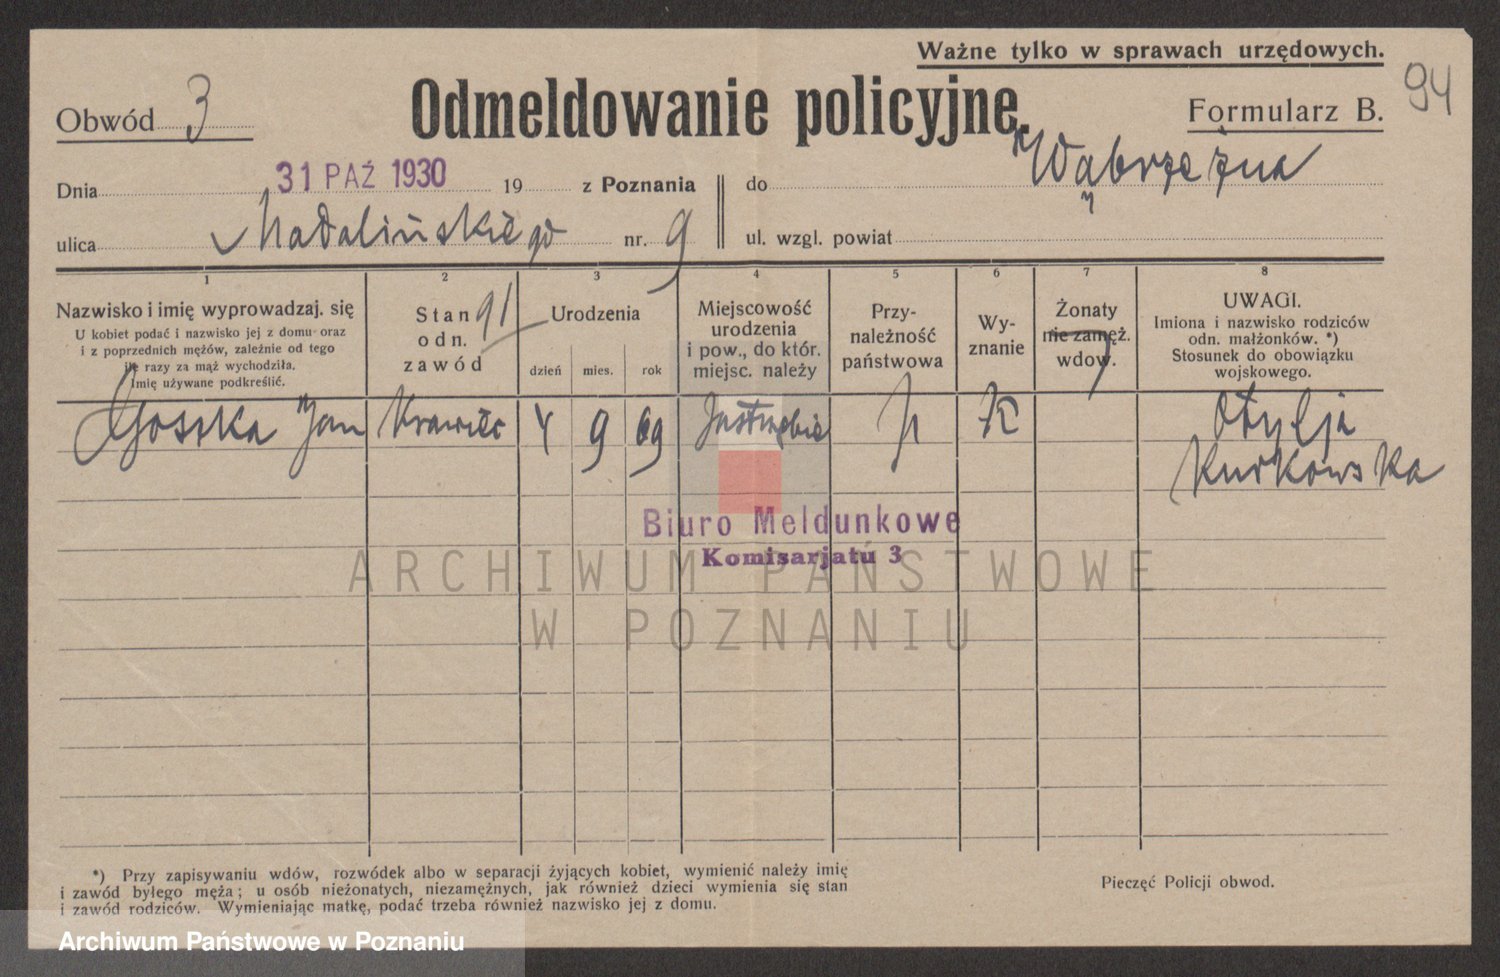 Ważne tylko w sprawach urzędowych.
94
Obwód 3
Odmeldowanie policyjne.
Formularz B.
Dnia 31 PAŹ 1930 19 z Poznania
do Wąbrzeźna
ulica Madalińskiego nr. 9
ul. wzgl. powiat
1 2 3 4 5 6 7 8
Nazwisko i imię wyprowadzaj. się
U kobiet podać i nazwisko jej z domu oraz
i z poprzednich mężów, zależnie od tego
ile razy za mąż wychodziła.
Imię używane podkreślić.
Stan 91
odn.
zawód
Urodzenia
dzień mies. rok
Miejscowość
urodzenia
i pow., do któr.
miejsc. należy
Przy-
należność
państwowa
Wy-
znanie
Żonaty
nie zamęż.
wdow.
UWAGI.
Imiona i nazwisko rodziców
odn. małżonków. *)
Stosunek do obowiązku
wojskowego.
Jan Krawiec 4 9 69 Jastrzębie p K Otylja
Kurkowska
Biuro Meldunkowe
Komisarjatu 3
ARCHIWUM PAŃSTWOWE
W POZNANIU
*) Przy zapisywaniu wdów, rozwódek albo w separacji żyjących kobiet, wymienić należy imię
i zawód byłego męża; u osób nieżonatych, niezamężnych, jak również dzieci wymienia się stan
i zawód rodziców. Wymieniając matkę, podać trzeba również nazwisko jej z domu.
Pieczęć Policji obwod.
Archiwum Państwowe w Poznaniu